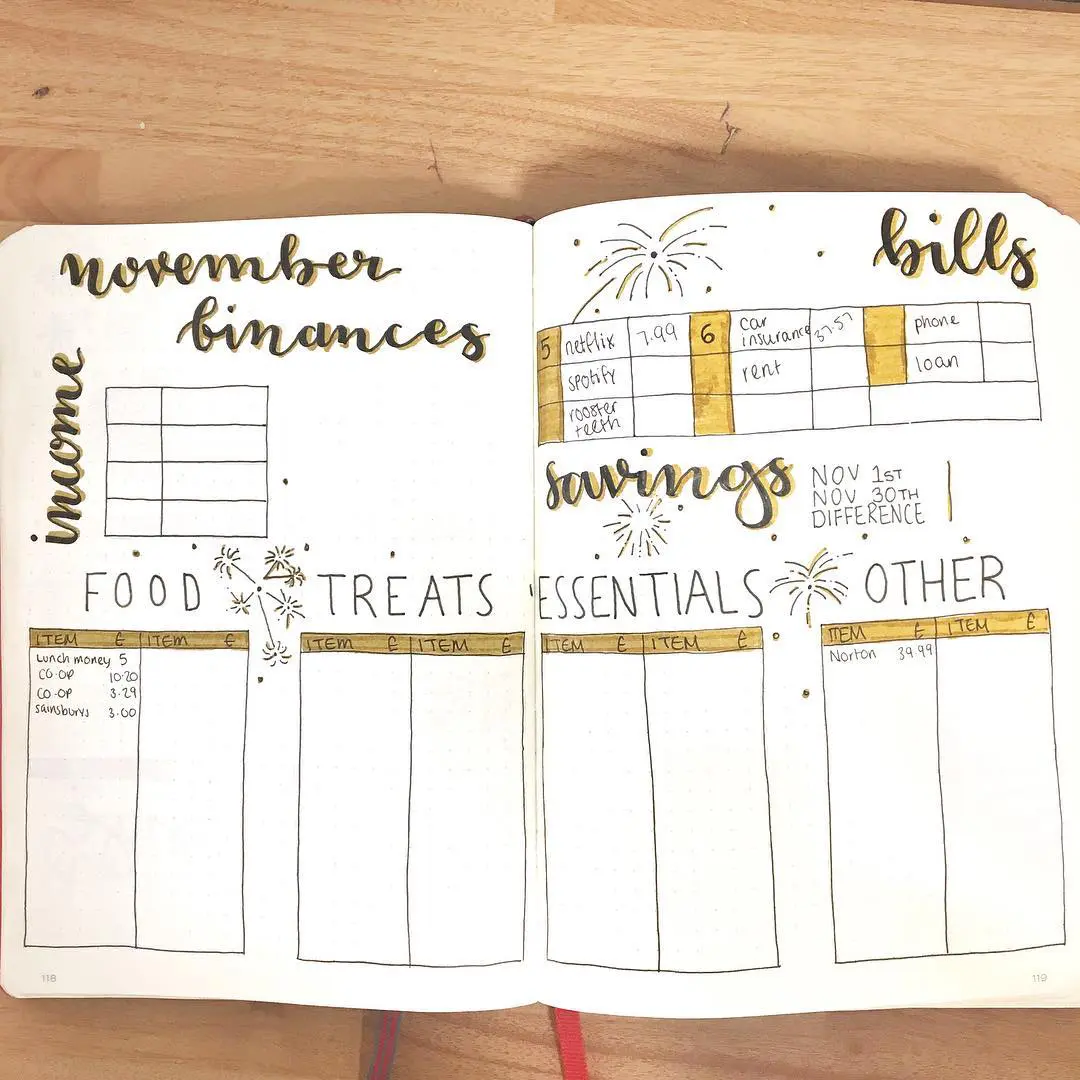 november
finances
income
FOOD
TREATS
ITEM £ ITEM £
Lunch money 5
CO-OP 10.20
CO-OP 3.29
sainsburys 3.00
ITEM £ ITEM £
118
bills
5 netflix 7.99 6 car insurance 37.57 phone
spotify rent loan
rooster
teeth
savings
NOV 1ST
NOV 30TH
DIFFERENCE
ESSENTIALS
OTHER
ITEM £ ITEM £
ITEM £ ITEM £
Norton 39.99
119